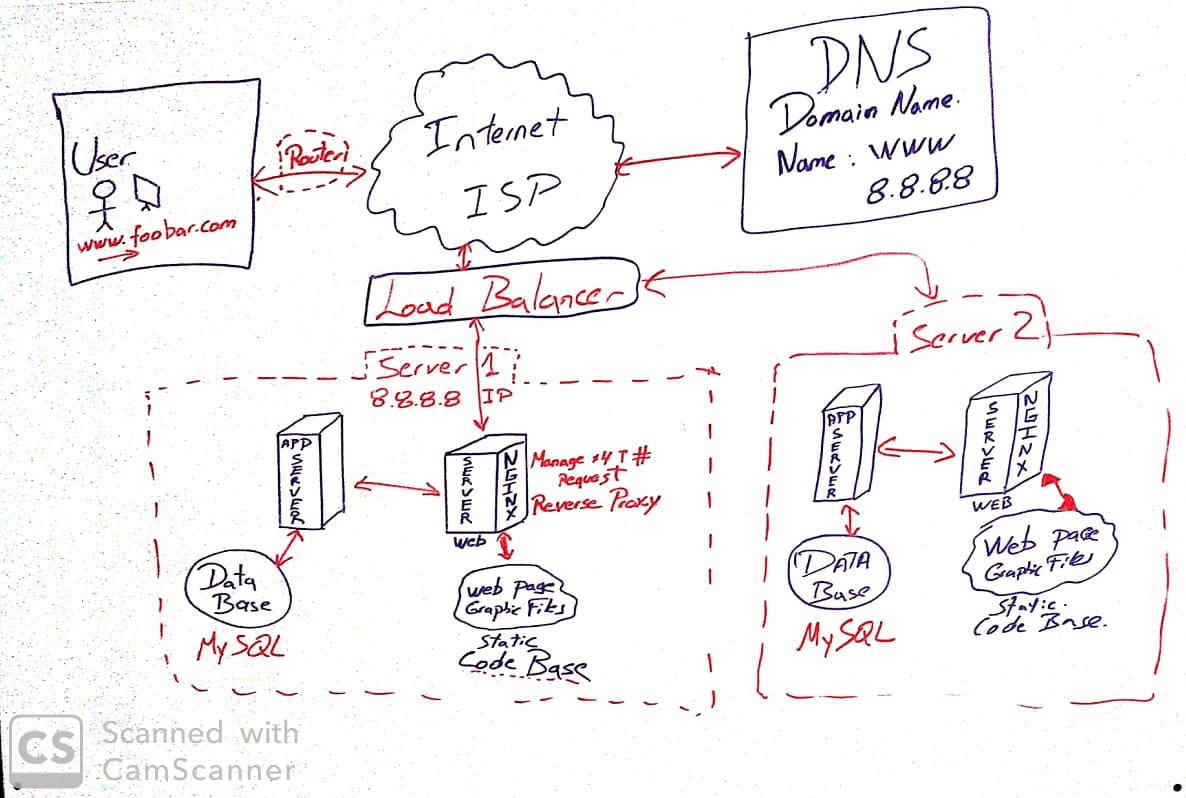 User
www.foobar.com
Router
Internet
ISP
DNS
Domain Name.
Name : WWW
8.8.8.8
Load Balancer
Server 1
8.8.8.8 IP
APP SERVER
SERVER NGINX
Web
Manage
Request
Reverse Proxy
Data
Base
MySQL
Web Page
Graphic Files
Static
Code Base
Server 2
APP SERVER
SERVER NGINX
WEB
DATA
Base
MySQL
Web Page
Graphic Files
Static.
Code Base.
CS Scanned with
CamScanner